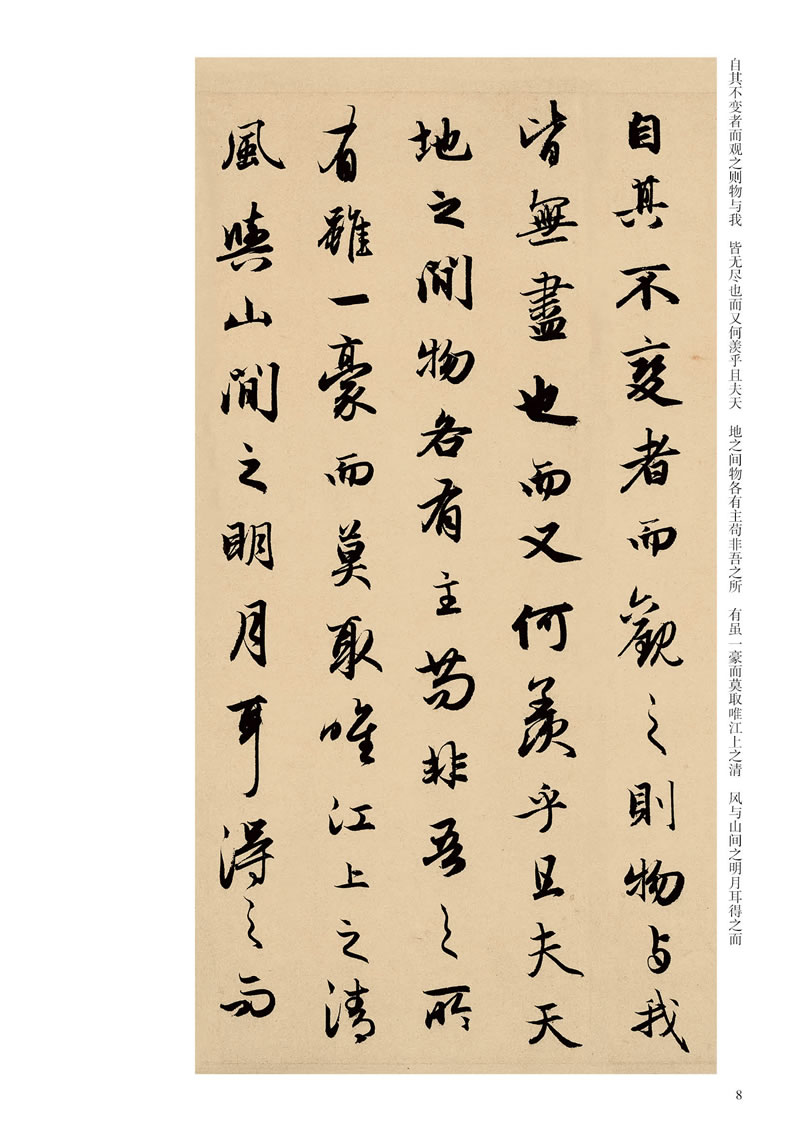 自其不变者而观之则物与我　皆无尽也而又何羡乎且夫天　地之间物各有主苟非吾之所　有虽一豪而莫取唯江上之清　风与山间之明月耳得之而
自其不變者而觀之則物与我
皆無盡也而又何羨乎且夫天
地之間物各有主苟非吾之所
有雖一豪而莫取唯江上之清
風與山間之明月耳得之而
8